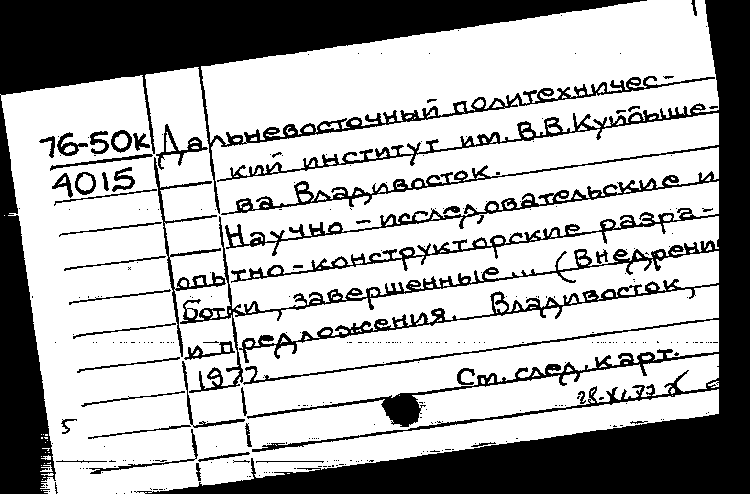 76-50к
4015
Дальневосточный политехничес-
кий институт им. В.В.Куйбыше-
ва. Владивосток.
Научно-исследовательские и
опытно-конструкторские разра-
ботки, завершенные... (Внедрени
и предложения. Владивосток,
1972.
См. след. карт.
5